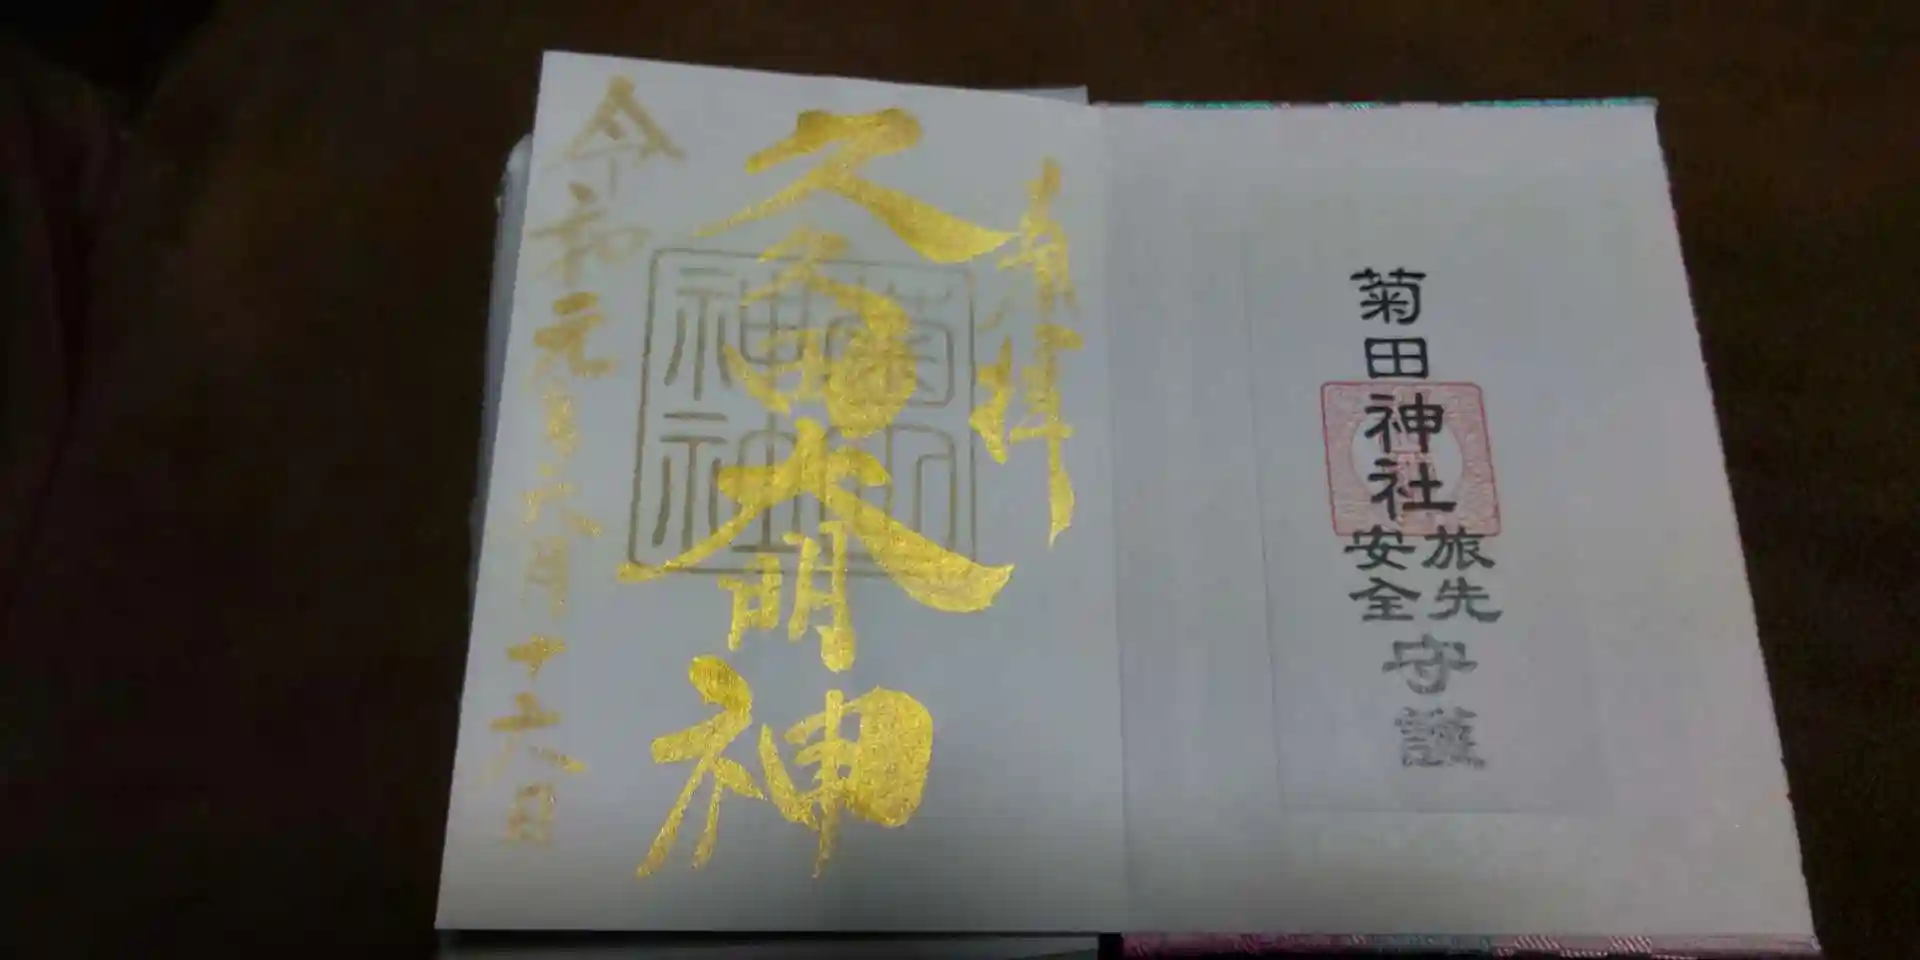 菊田神社
旅先
安全
守護
奉拝
久々田大明神
菊田
神社
令和元年六月十六日